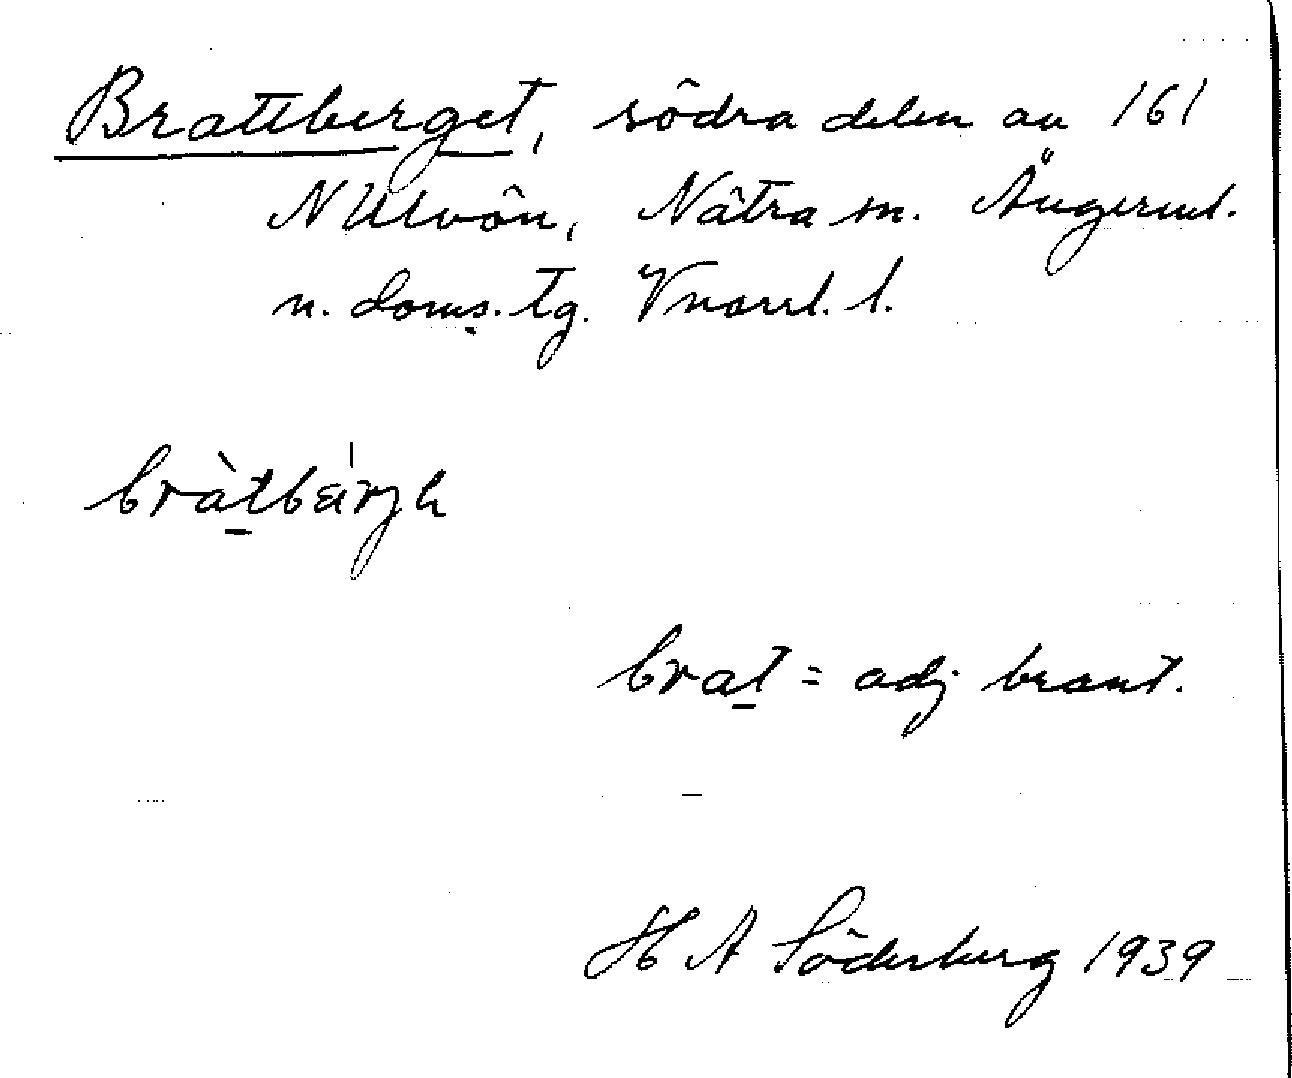 Brattberget, södra delen av 161
N Ulvön, Nätra sn. Ångerml.
n. doms. tg. Vnorrl. l.
bràt̲bárjh
brat̲ = adj brant.
H A Söderberg 1939